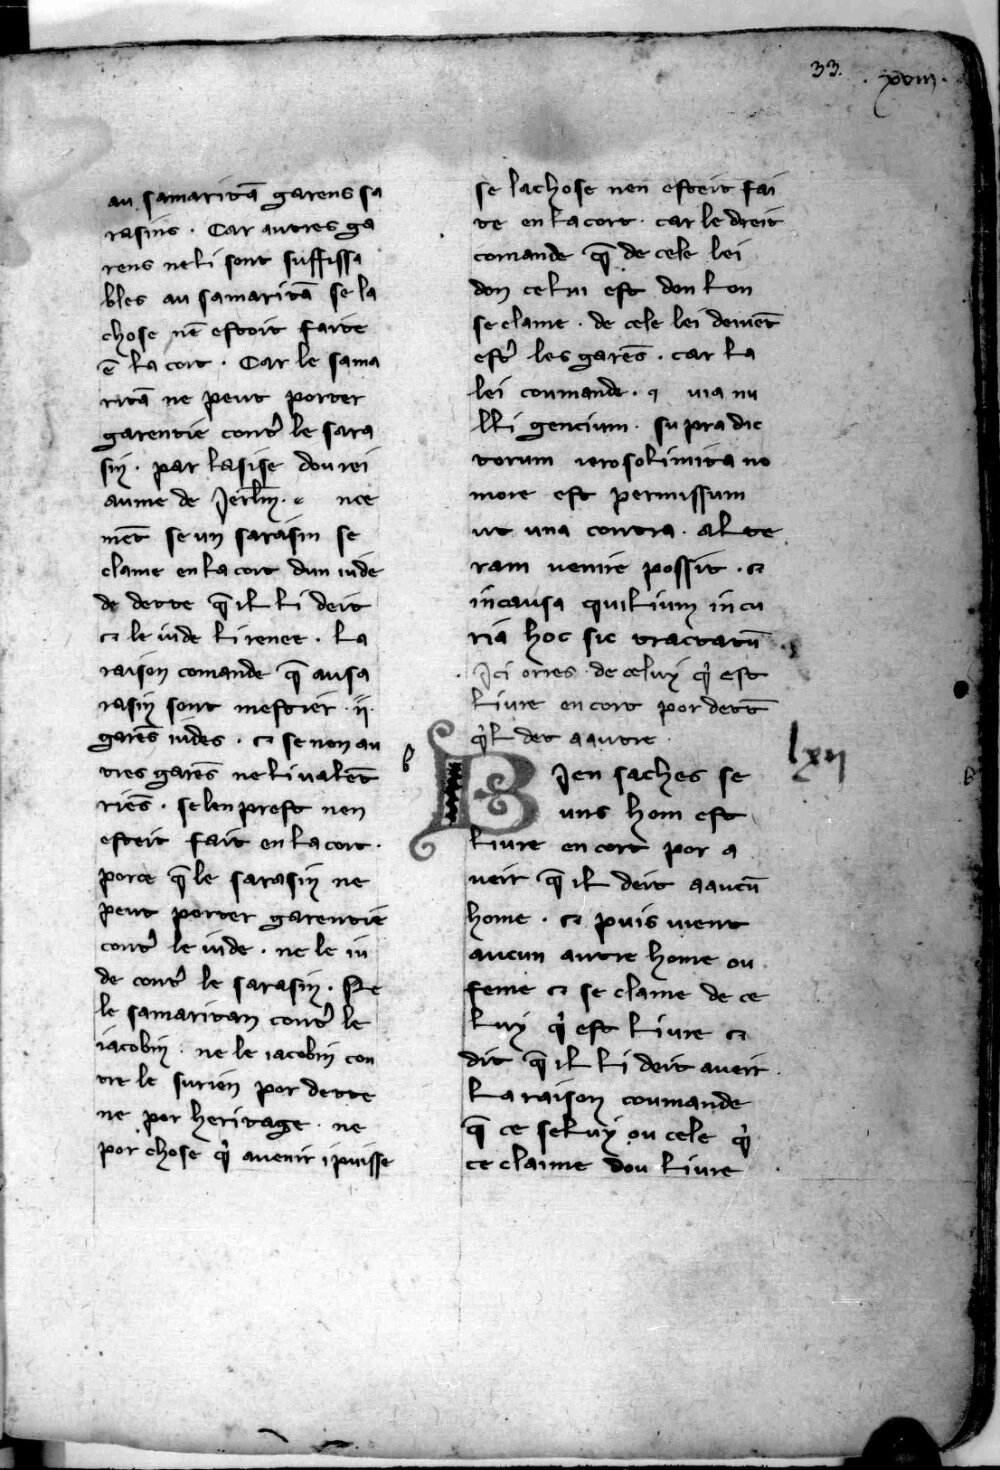 33. . xviii.
au samaritā garens sa
rasins . Car autres ga
rens ne li sont suffissa
bles au samaritā se la
chose nē estoit faite
ē la cort . Car le sama
ritā ne peut porter
garentie contᵉ le sara
sin . par lasise dou rei
aume de Jerlm̄ . e nce
mēt se un sarasin se
clame en la cort dun iude
de dette q̄ il li deit
⁊ le iude li renee . La
raison comande q̄ au sa
rasin sont mestier . ij .
garēs iudes . ⁊ se non au
tres garēs ne li ualēt
riēs . se len prest nen
esteit fait en la cort .
por ce q̄ le sarasin ne
peut porter garentie
contᵉ le iude . ne le iu
de contᵉ le sarasin . Ne
le samaritan contᵉ le
iacobin . ne le iacobin con
tre le surien por dette
ne por heritage . ne
por chose qͥ auenir i puisse
se la chose nen esteit fai
te en la cort . car le dreit
comande q̄ de cele lei
don celui est don l on
se clame . de cele lei deiuēt
estᵉ les garēs . car la
lei coumande . q uia nu
lli gencium . supradic
torum ierosolimita no
more est permissum
ut una contra . alte
ram uenire possit . ⁊
in causa qui lium in cu
riā hoc sic tractatū
Ici orres . de celuy qͥ est
liure en cort por dett̄
qͥl det a autre .
b
lxii
BIen saches se
uns hom est
liure en cort por a
ueir q̄ il deit a aucū
home . ⁊ puis uient
aucun autre home ou
feme ⁊ se clame de ce
luy qͥ est liure ⁊
dit q̄ il li deit aueir .
La raison coumande
q̄ ce seluy ou cele qͥ
ce claime dou liure